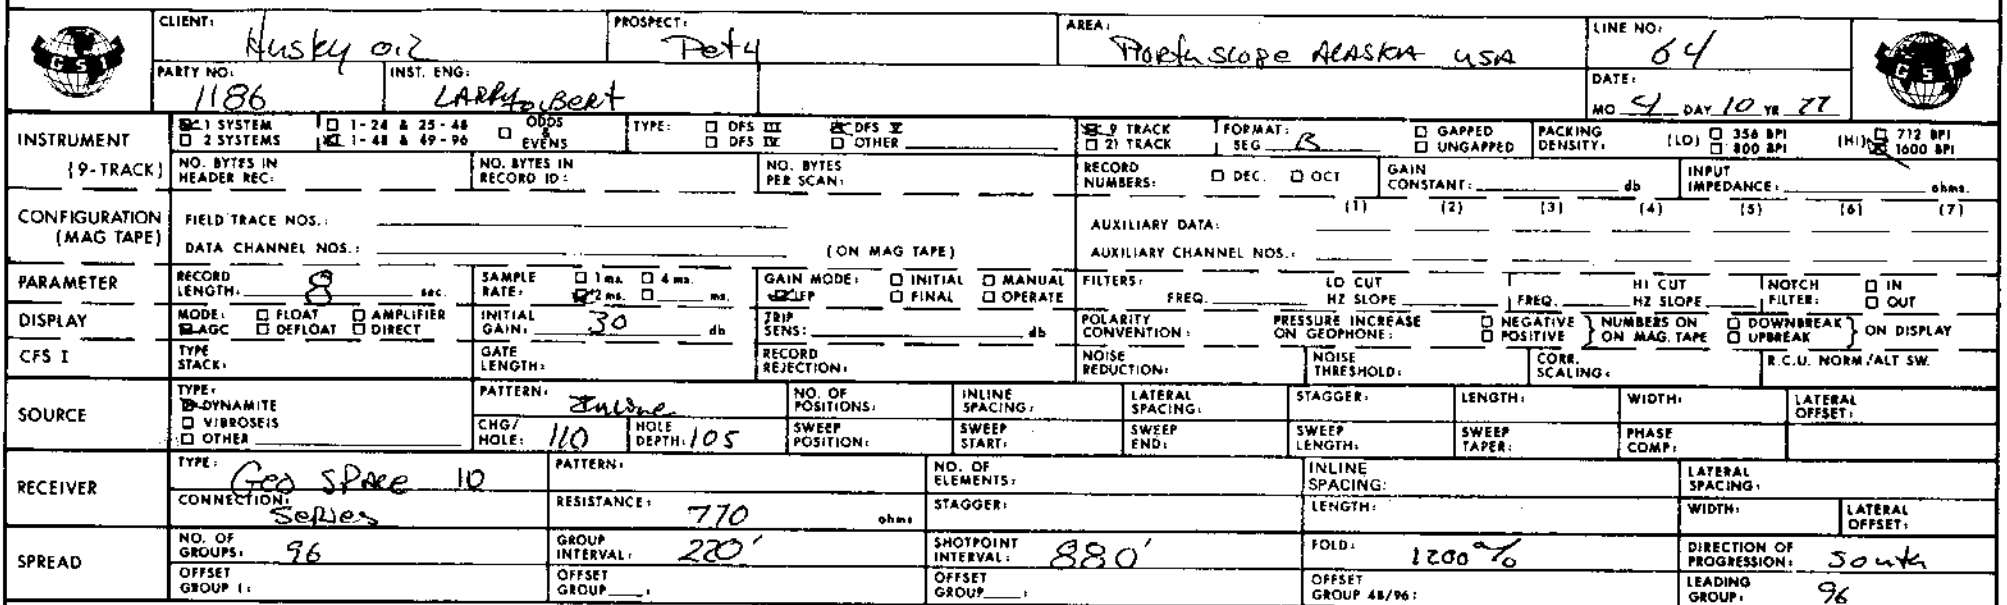 CLIENT: Husky oil PROSPECT: Pet 4 AREA: North Slope ALASKA USA LINE NO: 64
GSI
PARTY NO: 1186 INST. ENG: LARRY DATE: MO 4 DAY 10 YR 77
GSI
INSTRUMENT (9-TRACK)
1 SYSTEM 1-24 & 25-48 ODDS & EVENS TYPE: DFS III DFS V 9 TRACK FORMAT: GAPPED PACKING DENSITY: (LO) 356 BPI (HI) 712 BPI
2 SYSTEMS 1-48 & 49-96 DFS IV OTHER 21 TRACK SEG B UNGAPPED 800 BPI 1600 BPI
NO. BYTES IN HEADER REC: NO. BYTES IN RECORD ID: NO. BYTES PER SCAN: RECORD NUMBERS: DEC. OCT GAIN CONSTANT: db INPUT IMPEDANCE: ohms.
CONFIGURATION (MAG TAPE)
FIELD TRACE NOS.: AUXILIARY DATA: (1) (2) (3) (4) (5) (6) (7)
DATA CHANNEL NOS.: (ON MAG TAPE) AUXILIARY CHANNEL NOS.:
PARAMETER RECORD LENGTH: 8 sec. SAMPLE RATE: 1 ms. 4 ms. 2 ms. ms. GAIN MODE: INITIAL MANUAL IFP FINAL OPERATE FILTERS: FREQ. LO CUT HZ SLOPE FREQ. HI CUT HZ SLOPE NOTCH FILTER: IN OUT
DISPLAY MODE: FLOAT AMPLIFIER AGC DEFLOAT DIRECT INITIAL GAIN: 30 db TRIP SENS: db POLARITY CONVENTION: PRESSURE INCREASE ON GEOPHONE: NEGATIVE POSITIVE } NUMBERS ON ON MAG. TAPE DOWNBREAK UPBREAK } ON DISPLAY
CFS I TYPE STACK: GATE LENGTH: RECORD REJECTION: NOISE REDUCTION: NOISE THRESHOLD: CORR. SCALING: R.C.U. NORM/ALT SW.
SOURCE TYPE: DYNAMITE VIBROSEIS OTHER PATTERN: Inline NO. OF POSITIONS: INLINE SPACING: LATERAL SPACING: STAGGER: LENGTH: WIDTH: LATERAL OFFSET:
CHG/HOLE: 110 HOLE DEPTH: 105 SWEEP POSITION: SWEEP START: SWEEP END: SWEEP LENGTH: SWEEP TAPER: PHASE COMP:
RECEIVER TYPE: Geo SPACE 10 PATTERN: NO. OF ELEMENTS: INLINE SPACING: LATERAL SPACING:
CONNECTION: Series RESISTANCE: 770 ohms STAGGER: LENGTH: WIDTH: LATERAL OFFSET:
SPREAD NO. OF GROUPS: 96 GROUP INTERVAL: 220' SHOTPOINT INTERVAL: 880' FOLD: 1200% DIRECTION OF PROGRESSION: South
OFFSET GROUP 1: OFFSET GROUP : OFFSET GROUP : OFFSET GROUP 48/96: LEADING GROUP: 96